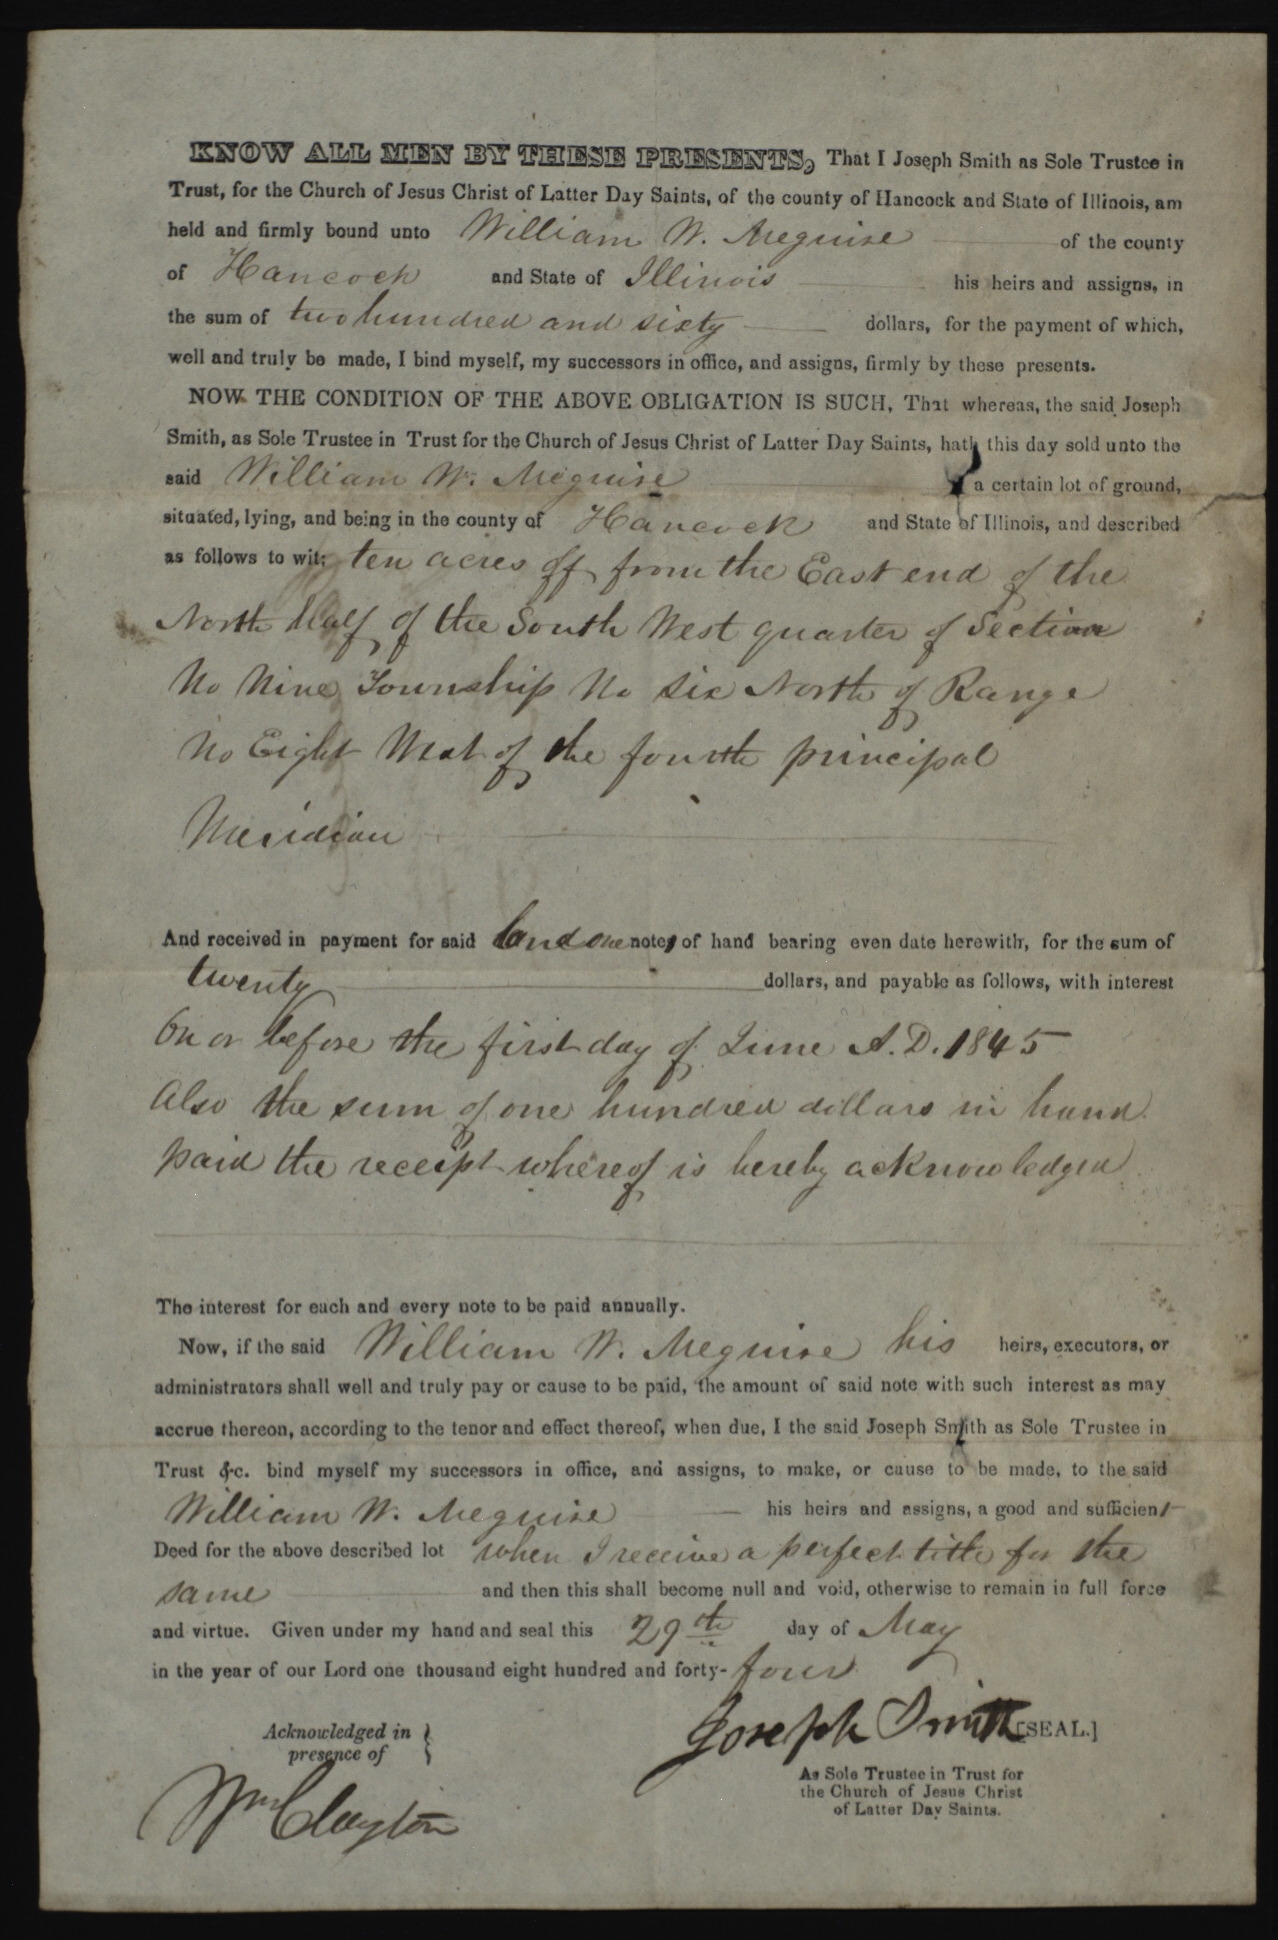 KNOW ALL MEN BY THESE PRESENTS, That I Joseph Smith as Sole Trustee in
Trust, for the Church of Jesus Christ of Latter Day Saints, of the county of Hancock and State of Illinois, am
held and firmly bound unto William W. Meguire of the county
of Hancock and State of Illinois his heirs and assigns, in
the sum of two hundred and sixty dollars, for the payment of which,
well and truly be made, I bind myself, my successors in office, and assigns, firmly by these presents.
NOW THE CONDITION OF THE ABOVE OBLIGATION IS SUCH, That whereas, the said Joseph
Smith, as Sole Trustee in Trust for the Church of Jesus Christ of Latter Day Saints, hath this day sold unto the
said William W. Meguire a certain lot of ground,
situated, lying, and being in the county of Hancock and State of Illinois, and described
as follows to wit: ten acres off from the East end of the
North half of the South West quarter of Section
No Nine Township No six North of Range
No Eight West of the fourth principal
Meridian
And received in payment for said land one note, of hand bearing even date herewith, for the sum of
twenty dollars, and payable as follows, with interest
On or before the first day of June A.D. 1845
Also the sum of one hundred dollars in hand
paid the receipt whereof is hereby acknowledged
The interest for each and every note to be paid annually.
Now, if the said William W. Meguire his heirs, executors, or
administrators shall well and truly pay or cause to be paid, the amount of said note with such interest as may
accrue thereon, according to the tenor and effect thereof, when due, I the said Joseph Smith as Sole Trustee in
Trust &c. bind myself my successors in office, and assigns, to make, or cause to be made, to the said
William W. Meguire his heirs and assigns, a good and sufficient
Deed for the above described lot when I receive a perfect title for the
same and then this shall become null and void, otherwise to remain in full force
and virtue. Given under my hand and seal this 29th day of May
in the year of our Lord one thousand eight hundred and forty-four
Joseph Smith [SEAL.]
Acknowledged in
presence of
As Sole Trustee in Trust for
the Church of Jesus Christ
of Latter Day Saints.
Wm Clayton